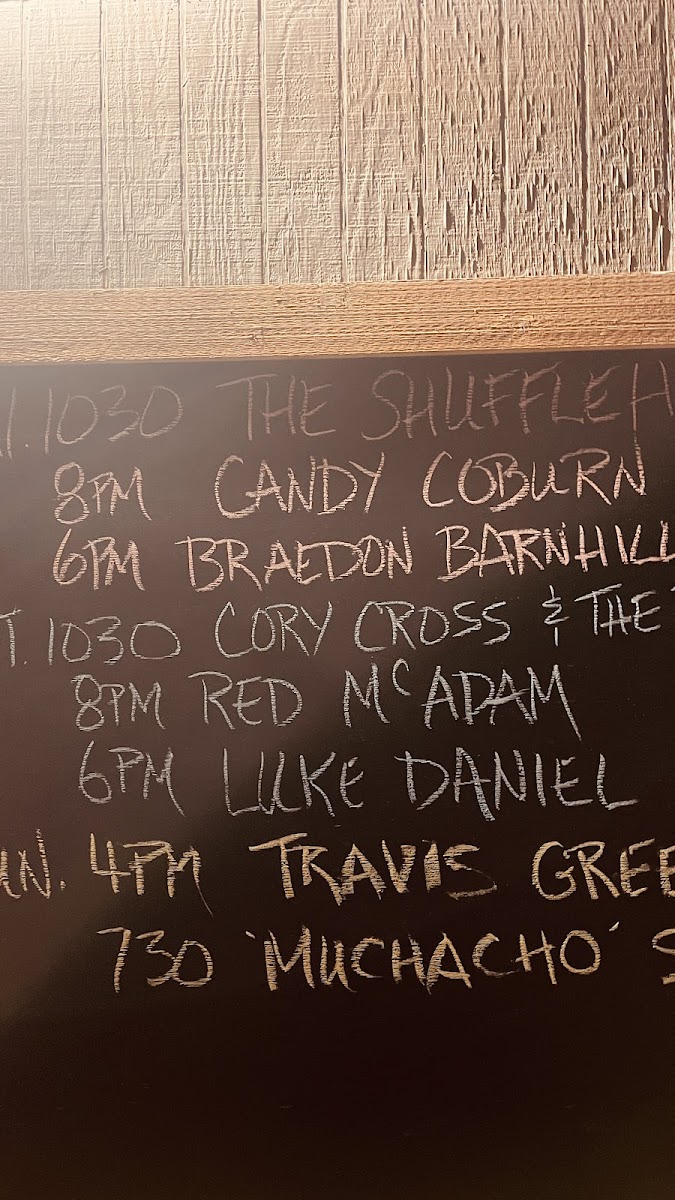 I. 1030 THE SHUFFLEH
8PM CANDY COBURN
6PM BRAEDON BARNHILL
T. 1030 CORY CROSS & THE
8PM RED McADAM
6PM LUKE DANIEL
UN. 4PM TRAVIS GREE
730 'MUCHACHO' S